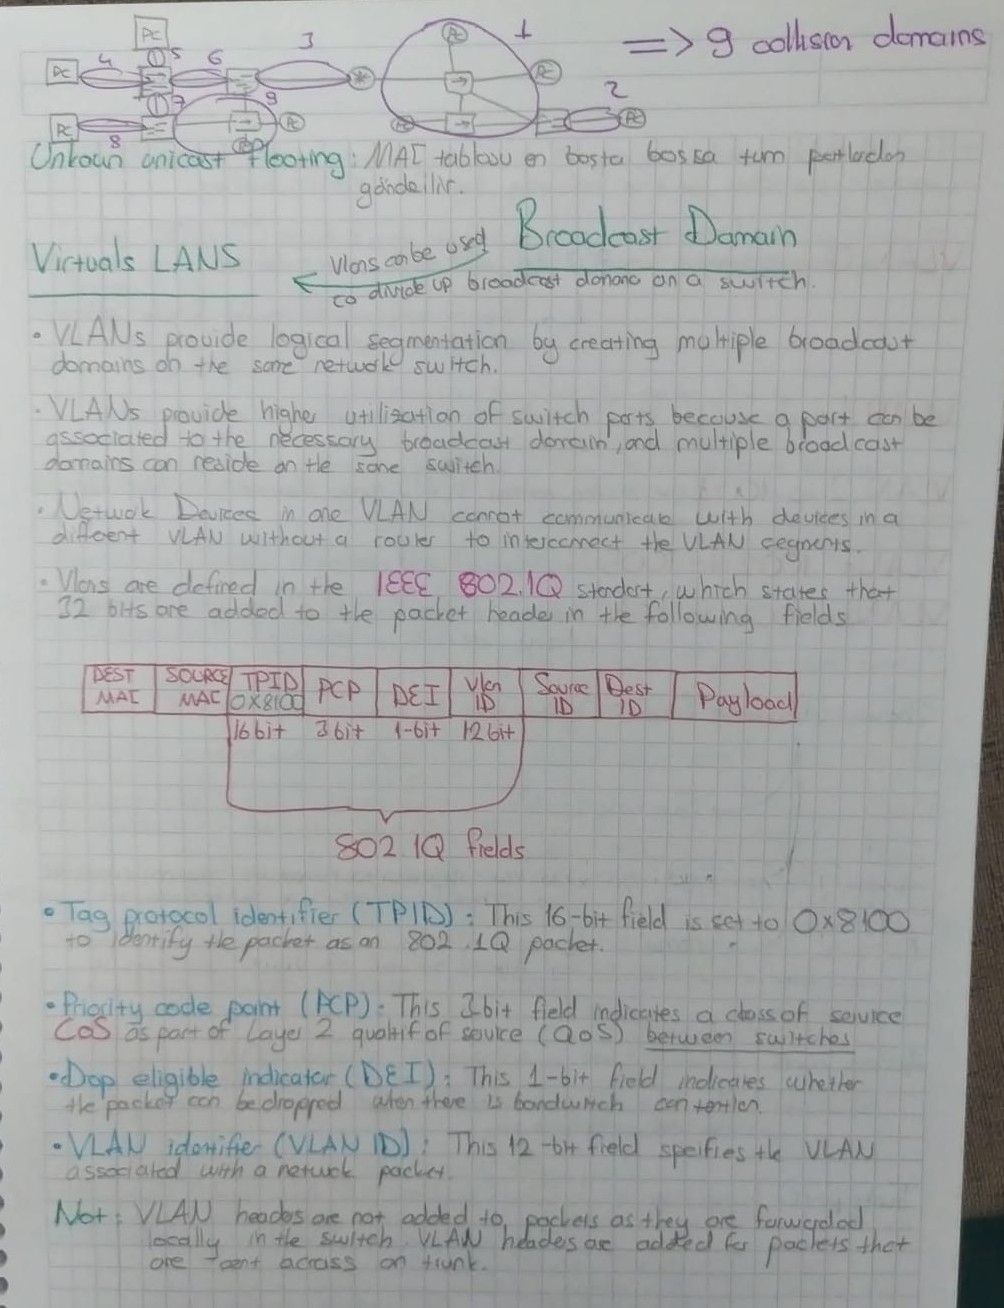 PC 5 6 3 PC 1 => 9 collision domains
PC 4 PC 2
7 9 PC PC
PC 8
Unkoun unicast flooting: MAC tablosu en bosta bossa tum portlardan
gönderilir.
Broadcast Domain
Virtuals LANS
Vlans can be used
to divide up broadcast domans on a switch.
• VLANs provide logical segmentation by creating multiple broadcast
domains on the same network switch.
• VLANs provide higher utilization of switch ports because a port can be
associated to the necessary broadcast domain, and multiple broadcast
domains can reside on the same switch.
• Netwok Devices in one VLAN cannot communicate with devices in a
different VLAN without a router to interconnect the VLAN segments.
• Vlans are defined in the IEEE 802.1Q standart, which states that
32 bits are added to the packet header in the following fields
DEST MAC SOURCE MAC TPID 0X8100 PCP DEI Vlan ID Source ID Dest ID Payload
16 bit 3 bit 1-bit 12 bit
802.1Q fields
• Tag protocol identifier (TPID): This 16-bit field is set to 0x8100
to identify the packet as an 802.1Q packet.
• Priority code point (PCP): This 3-bit field indicates a class of service
CoS as part of Layer 2 (QoS) between switches
• Drop eligible indicator (DEI): This 1-bit field indicates whether
the packet can be dropped when there is
• VLAN identifier (VLAN ID): This 12-bit field specifies the VLAN
associated with a network packet.
Not: VLAN headers are not added to packets as they are forwarded
locally in the switch. VLAN headers are added for packets that
are sent across an trunk.